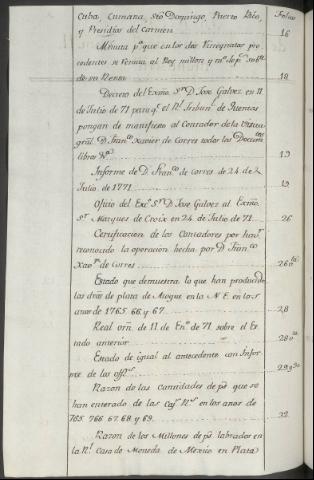 Cuba, Cumana, Sto Domingo, Puerto Rico, Folios
y Presidios del Carmen 16
Minuta pa que en los dos
procedentes se remita al Rey millon y mo de ps
de su Renta 18
Decreto del Exmo Sor Dn Jose Galvez en 11
de Julio de 71 para qe el Rl Tribunl de Cuentas
pongan de manifiesto al Contador de la
gral D. Franco Xavier de Corres todos los Documtos
libros &a 19
Informe de D. Franco de Corres de 24 de
Julio de 1771 19
Oficio del Exo Sor D Jose Galvez al Exmo
Sr Marques de Croix en 24 de Julio de 71 26
Certificacion de los Contadores por haver
reconocido la operacion hecha por D Franco
Xavr de Corres 26
Estado que demuestra lo que han producido
los dros de plata de Azogue en la N. E. en los
anos de 1765. 66. y 67 28
Real orn de 11 de Eno de 71 sobre el Es
tado anterior 28
Estado de igual al antecedente con Infor
me de los offs 29
Razon de las cantidades de ps que se
han enterado de las Cajs Rs en los anos de
765. 766. 67. 68. y 69. 32
Razon de los Millones de ps labrados en
la Rl Casa de Moneda de Mexico en Plata